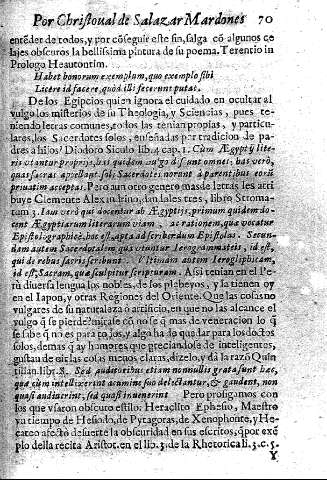 Por Christoual de Salazar Mardones 70
entēder de todos, y por cōseguir este fin, salga cō algunos ce
lajes obscuros la bellissima pintura de su poema. Terentio in
Prologo Heautontim.
Habet bonorum exemplum, quo exemplo sibi
Licere id facere, quòd illi fecerunt putat.
De los Egipcios quien ignora el cuidado en ocultar al
vulgo los misterios de su Theologia, y Sciencias, pues te-
niendo letras comunes, todos las tenian propias, y particu-
lares, los Sacerdotes solos, enseñadas por tradicion de pa-
dres a hijos? Diodoro Siculo lib. 4. cap. 1. Cum Ægyptij lite-
ris vtantur proprijs, has quidem vulgo discunt omnes: has verò,
quas sacras appellant, soli Sacerdotes norunt à parentibus eorū
priuatim acceptas. Pero aun otro genero mas de letras les atri
buye Clemente Alexandrino, dan tales tres, libro Stroma-
tum 5. Iam verò qui docentur ab Ægyptijs, primum quidem do-
cent Ægyptiarum literarum viam, ac rationem, quæ vocatur
Epistolographicè, hoc est, apta ad scribendum Epistolas. Secun-
dam autem Sacerdotalem qua vtuntur Ierogrammateis, id est,
qui de rebus sacris scribunt. Vltimam autem Ieroglificam,
id est, Sacram, quæ sculpitur scripturam. Assi tenian en el Pe
rù diuersa lengua los nobles, de los plebeyos, y la tienen oy
en el Iapon, y otras Regiones del Oriente. Que las cosas no
vulgares de su naturaleza ò artificio, en que no las alcance el
vulgo q̄ se pierde? mirase cō no se q̄ mas de veneracion lo q̄
se sabe q̄ no es para todos, y algo ha de quedar para los doctos
solos, demas q̄ ay humores que preciandose de inteligentes,
gustan de oir las cosas menos claras, dizelo, y dà la razō Quin
tilian. lib. 8. Sed auditoribus etiam nonnullis grata sunt hæc,
quæ cùm intellexerint acumine suo delectantur, & gaudent, non
quasi audierint, sed quasi inuenerint Pero prosigamos con
los que vsaron obscuro estilo: Heraclito Ephesio, Maestro
vn tiempo de Hesiodo, de Pytagoras, de Xenophonte, y He-
cateo afectò de suerte la obscuridad en sus escritos, q̄ por exē
plo della recita Aristot. en el lib. 3. de la Rhetorica li. 3. c. 5.
Y